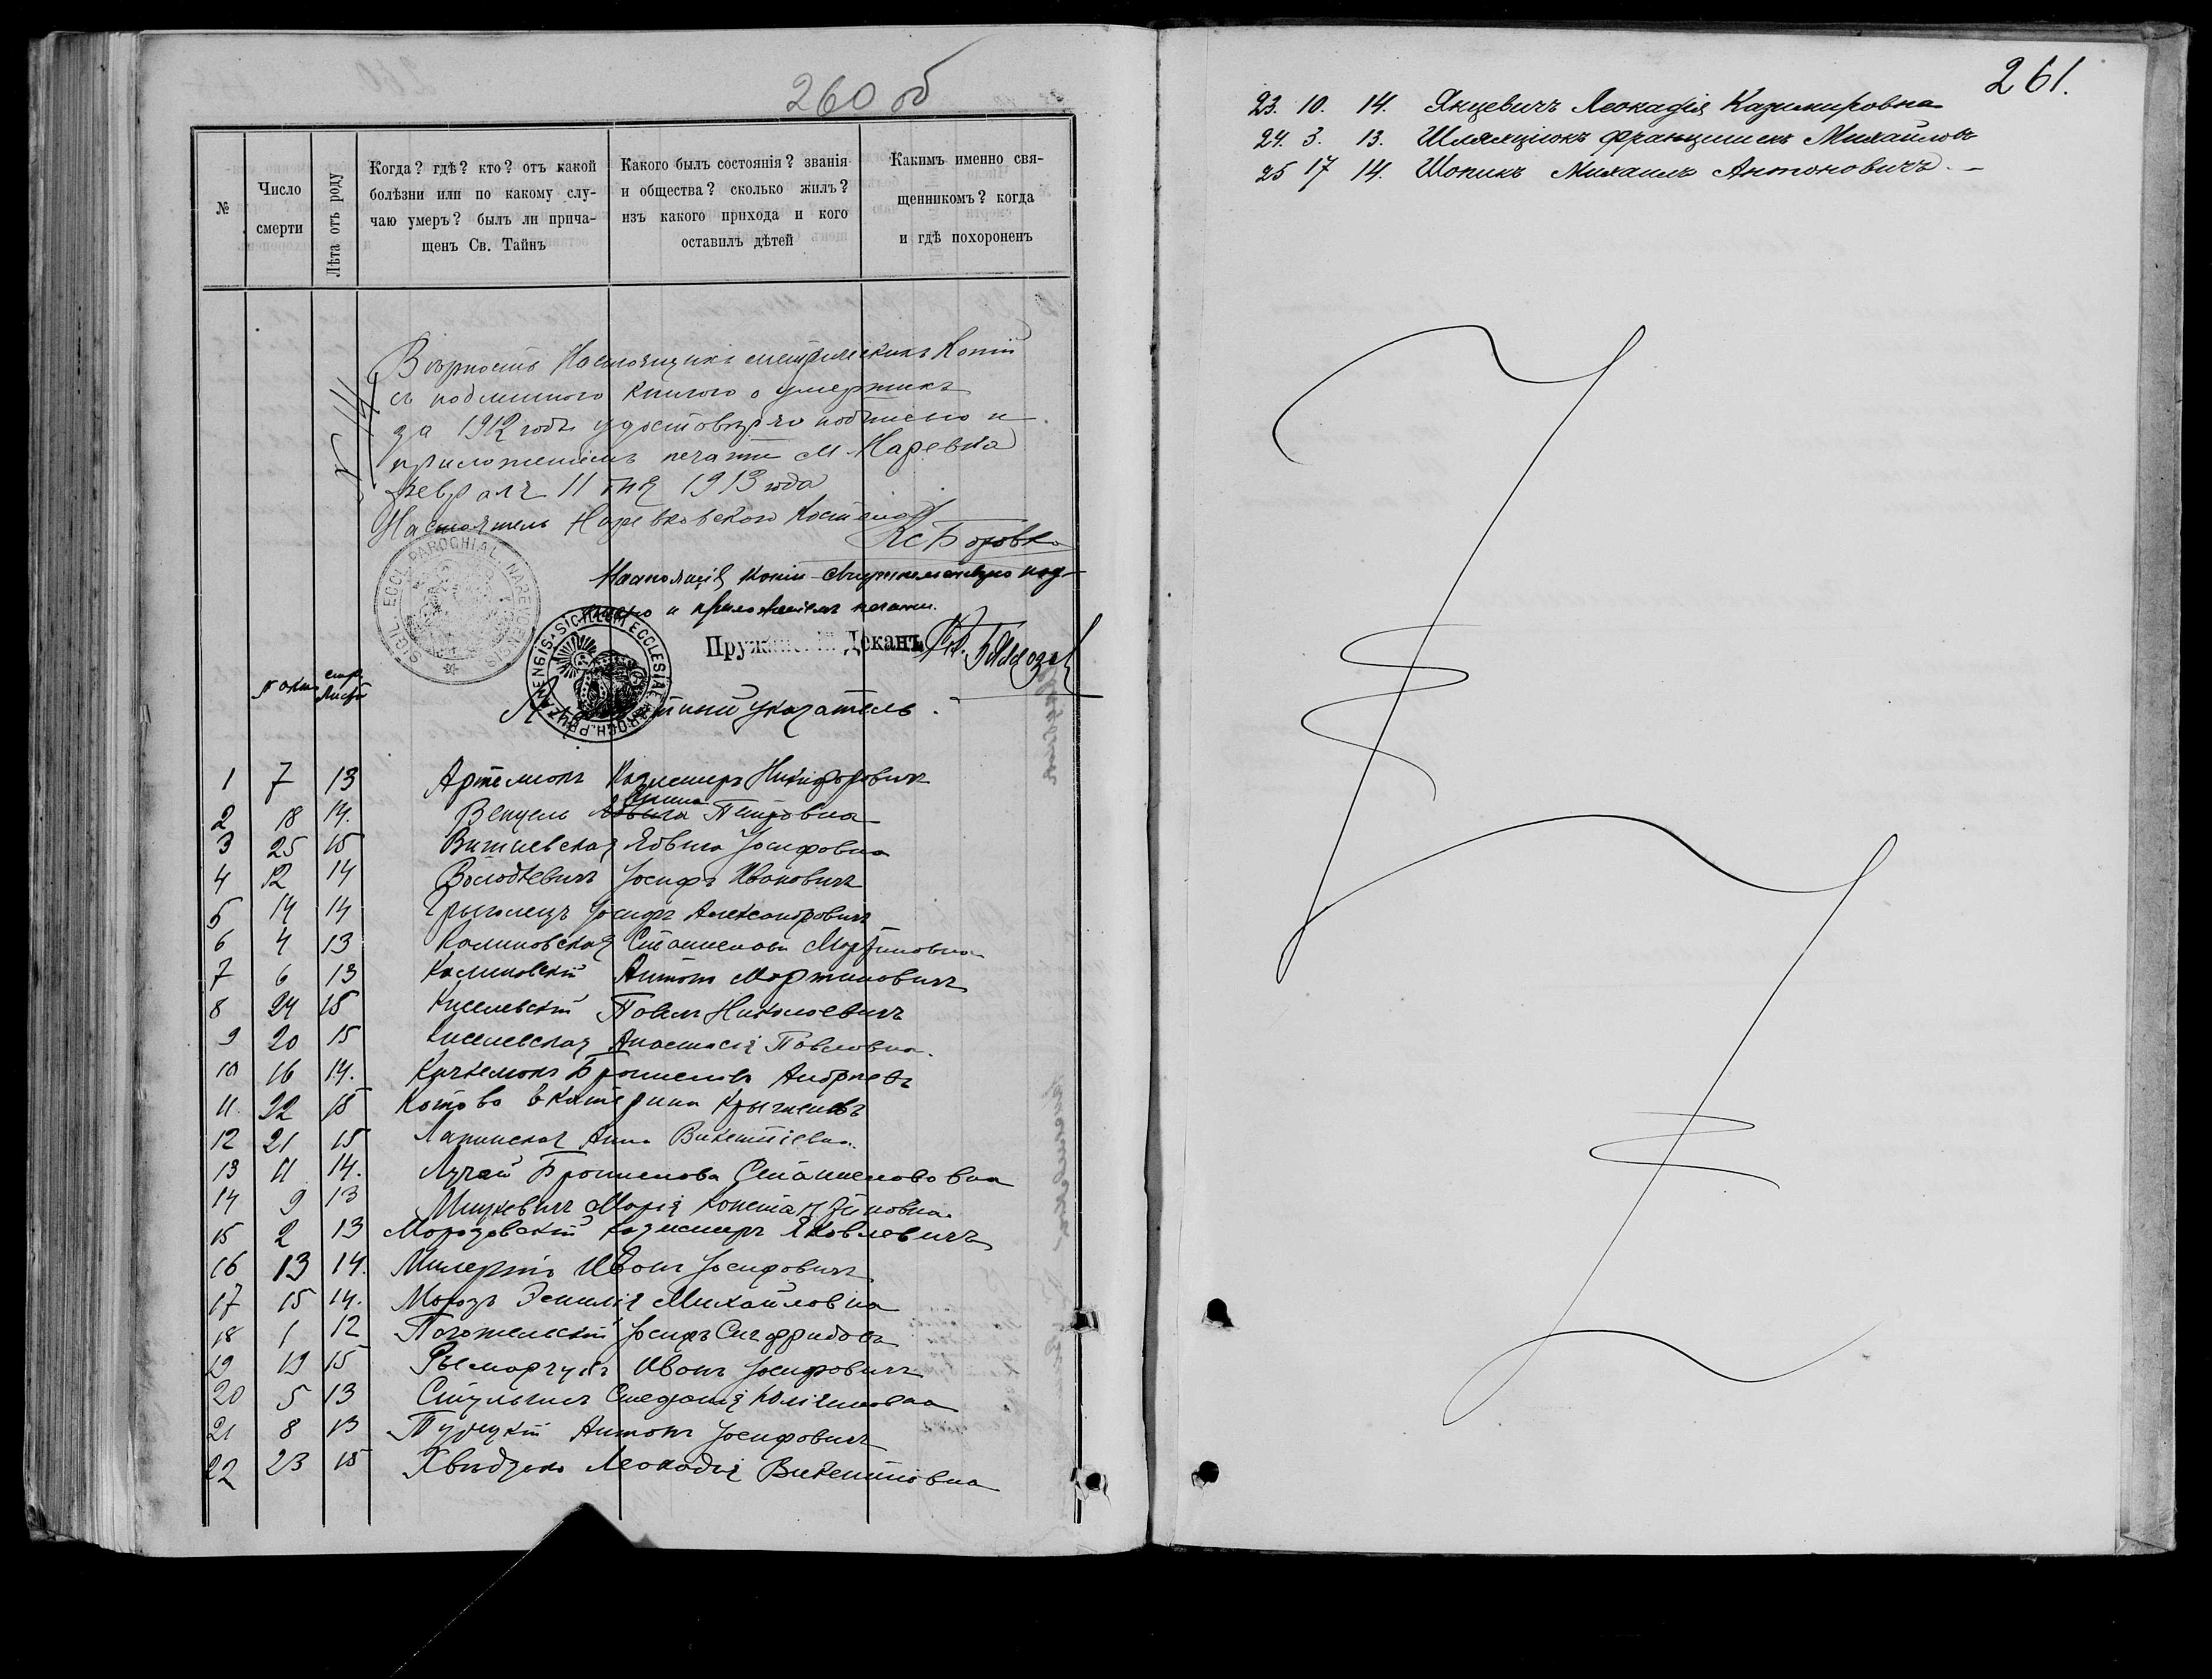 260 об
№
Число
смерти
Лѣта отъ роду
Когда? гдѣ? кто? отъ какой
болѣзни или по какому слу-
чаю умеръ? былъ ли прича-
щенъ Св. Тайнъ
Какого былъ состоянія? званія
и общества? сколько жилъ?
изъ какого прихода и кого
оставилъ дѣтей
Какимъ именно свя-
щенникомъ? когда
и гдѣ похороненъ
Вѣрность Настоящихъ метрическихъ Копій
съ подлинною книгою о умершихъ
за 1912 годъ удостовѣряю подписью и
приложеніемъ печати М. Наревка
Февраля 11 дня 1913 года
Настоятель Наревковского Костела
Кс Боровко
SIGIL. ECCL. PAROCHIAL. NAREVCENSIS
Настоящія копіи свидѣтельствую под-
писью и приложеніемъ печати.
Пружанскій Деканъ Кс.
SIGILLUM ECCLESIAE PAROCH. PRUZANENSIS
№ акта стр. листъ
указатель.
1 7 13 Артемюкъ Казимиръ Никифоровичъ
2 18 14. Венцель Анна Петровна
3 25 15 Вишневская Ядвига Іосифовна
4 12 14 Володкевичъ Іосифъ Ивановичъ
5 14 14 Іосифъ Александровичъ
6 4 13 Калиновская Станислава Мартиновна
7 6 13 Калиновскій Антонъ Мартиновичъ
8 24 15 Киселевскій Павелъ Николаевичъ
9 20 15 Киселевская Анастасія Павловна.
10 16 14. Брониславъ Андреевъ
11. 22 15 Котово Екатерина
12 21 15 Лапинская Анна Викентіевна.
13 11 14. Лучай Бронислава Станиславовна
14 9 13 Мицкевичъ Марія Константиновна.
15 2 13 Морозовскій Казимиръ Яковлевичъ
16 13 14. Милертъ Иванъ Іосифовичъ
17 15 14. Морозъ Эмилія Михайловна
18 1 12 Погожельскій Іосифъ Сигфридовъ
19 19 15 Рымарчукъ Иванъ Іосифовичъ
20 5 13 Стефанія Юліановна
21 8 13 Турецкій Антонъ Іосифовичъ
22 23 15 Леокадія Викентіевна
261.
23. 10. 14. Янцевичъ Леокадія Казимировна
24. 3. 13. Шляхцюкъ Францишекъ Михайловъ
25 17 14. Шопикъ Михаилъ Антоновичъ. –